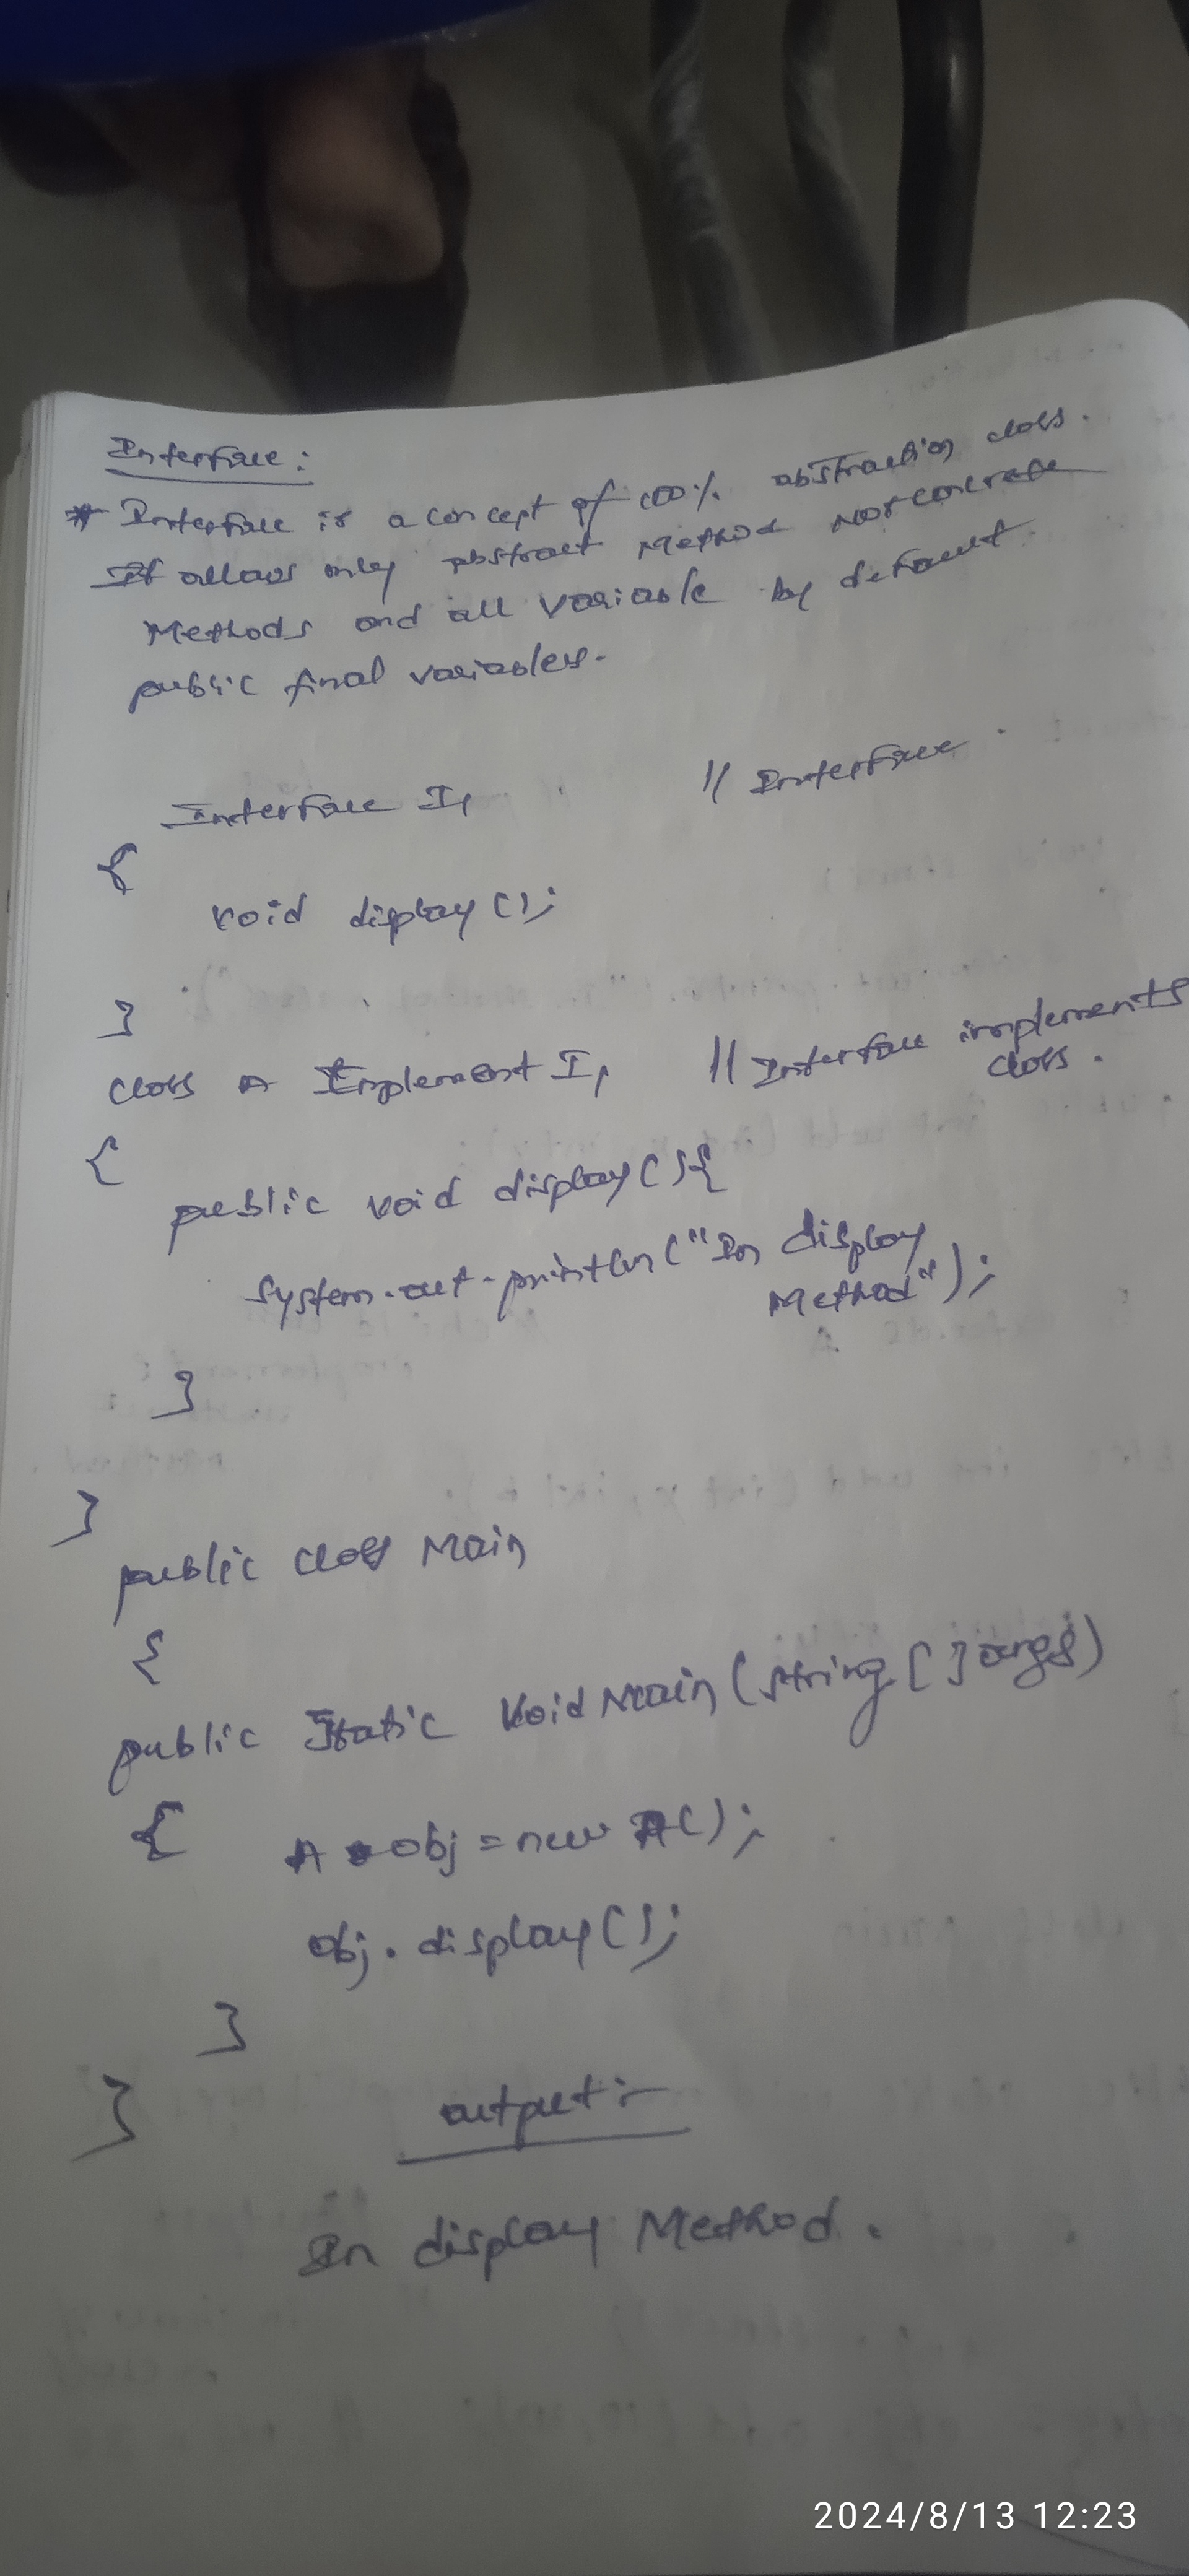 Interface:
* Interface is a concept of 100% abstraction class.
It allows only abstract Method Not concrete
Methods and all variable by default
public final variables.
Interface I1 // Interface.
{
void display();
}
class A Implement I1 // Interface implements
class.
{
public void display(){
System.out.println("In display
Method");
}
}
public class Main
{
public Static Void Main(String[]args)
{ A obj = new A();
obj.display();
}
}
output:-
In display Method.
2024/8/13 12:23